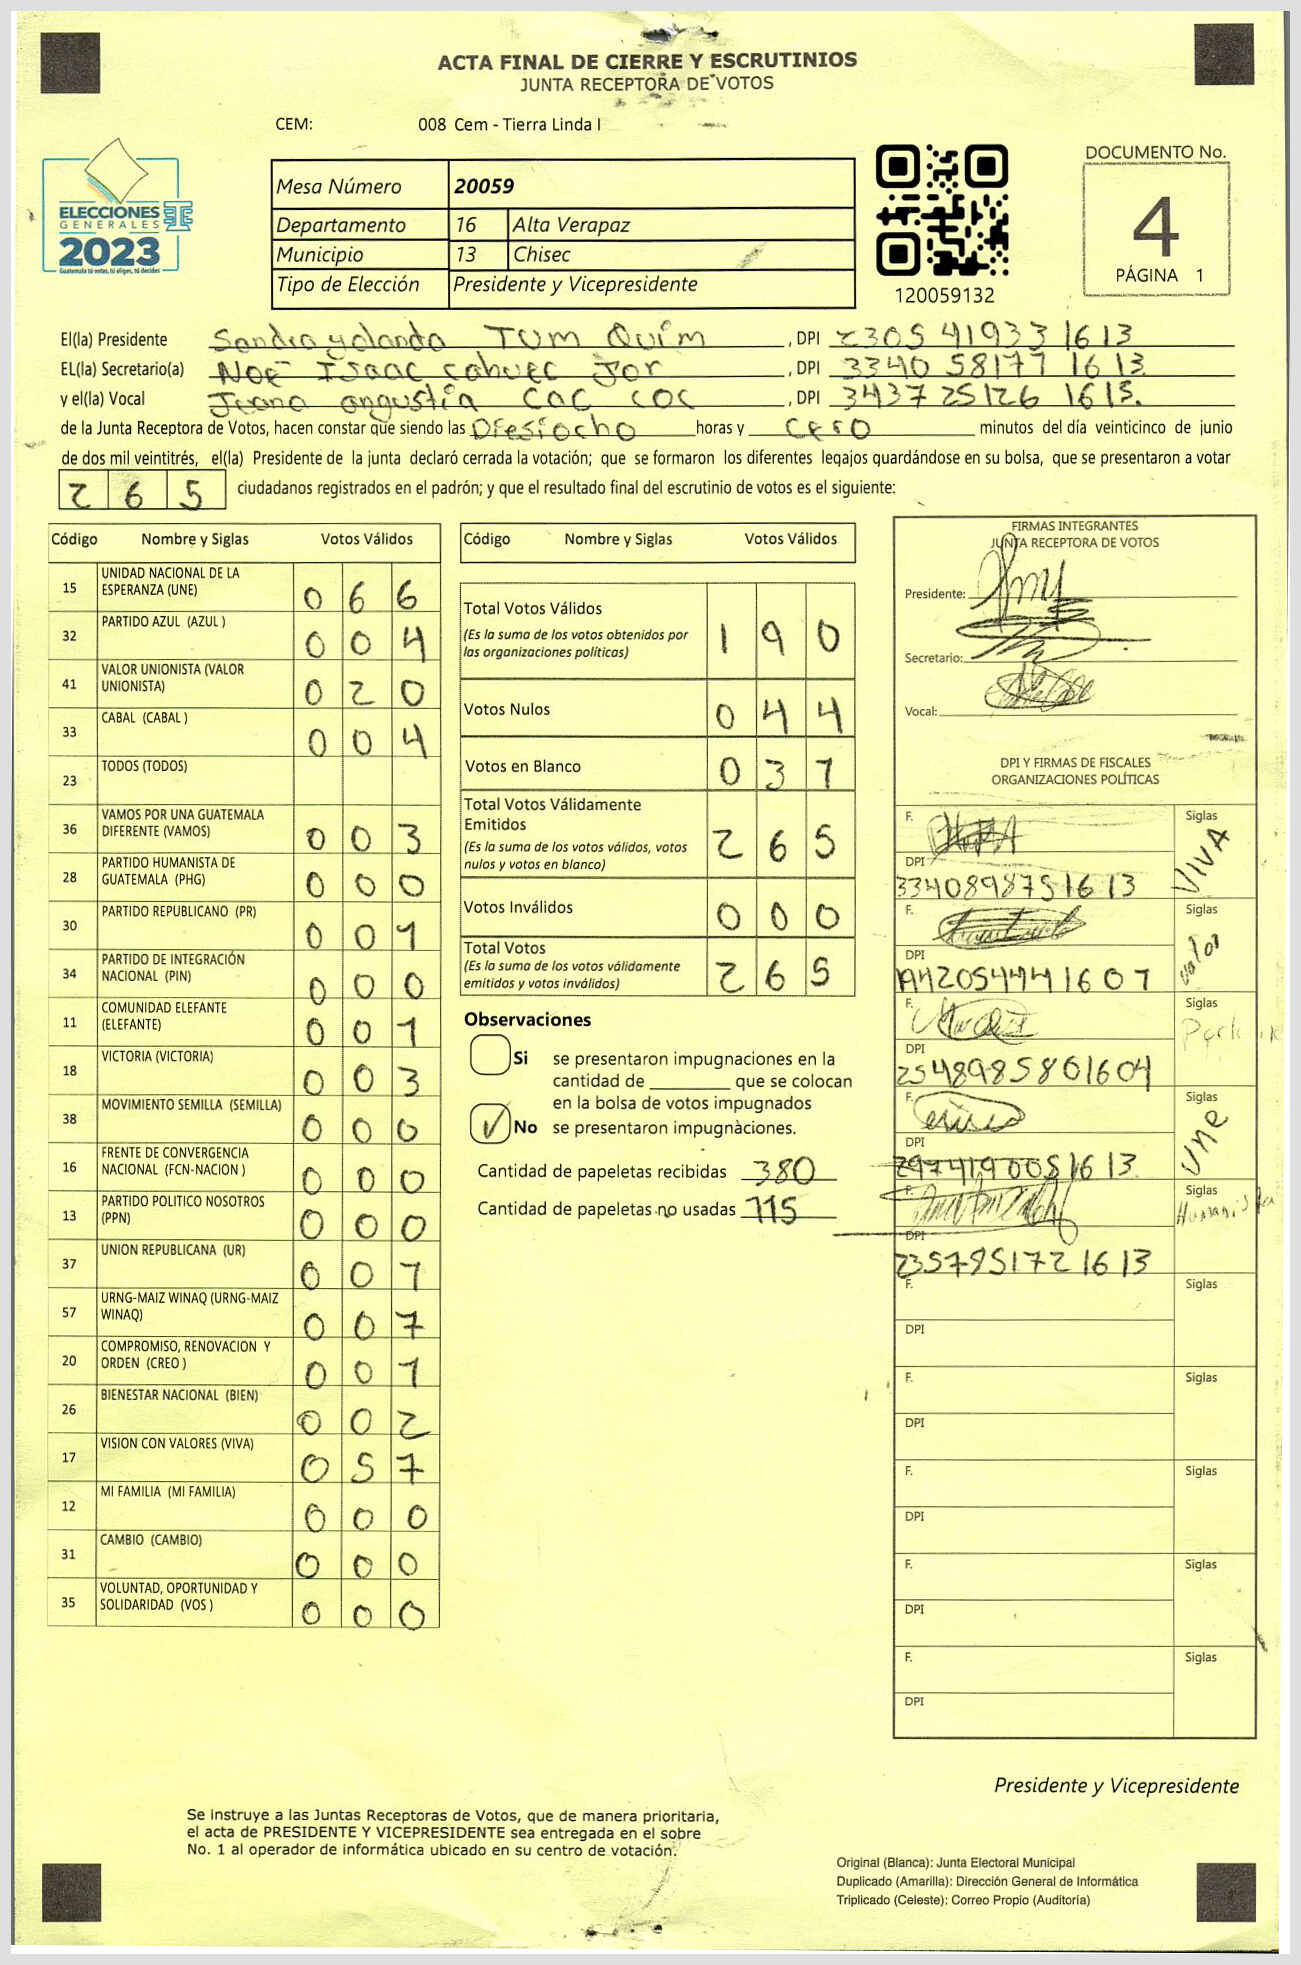 ACTA FINAL DE CIERRE Y ESCRUTINIOS
JUNTA RECEPTORA DE VOTOS
CEM: 008 Cem - Tierra Linda I
ELECCIONES
GENERALES
2023
Guatemala tú votas, tú eliges, tú decides
Mesa Número 20059
Departamento 16 Alta Verapaz
Municipio 13 Chisec
Tipo de Elección Presidente y Vicepresidente
120059132
DOCUMENTO No.
4
PÁGINA 1
El(la) Presidente Sandra yolanda TUM QUIM, DPI 2305 41933 1613
EL(la) Secretario(a) NOE ISaac cahuec Jor, DPI 3340 58177 1613
y el(la) Vocal Juana angustia CaC COC, DPI 3437 25126 1613.
de la Junta Receptora de Votos, hacen constar que siendo las Diesiocho horas y cero minutos del día veinticinco de junio
de dos mil veintitrés, el(la) Presidente de la junta declaró cerrada la votación; que se formaron los diferentes legajos guardándose en su bolsa, que se presentaron a votar
265 ciudadanos registrados en el padrón; y que el resultado final del escrutinio de votos es el siguiente:
Código Nombre y Siglas Votos Válidos
15 UNIDAD NACIONAL DE LA ESPERANZA (UNE) 066
32 PARTIDO AZUL (AZUL ) 004
41 VALOR UNIONISTA (VALOR UNIONISTA) 020
33 CABAL (CABAL ) 004
23 TODOS (TODOS)
36 VAMOS POR UNA GUATEMALA DIFERENTE (VAMOS) 003
28 PARTIDO HUMANISTA DE GUATEMALA (PHG) 000
30 PARTIDO REPUBLICANO (PR) 001
34 PARTIDO DE INTEGRACIÓN NACIONAL (PIN) 000
11 COMUNIDAD ELEFANTE (ELEFANTE) 001
18 VICTORIA (VICTORIA) 003
38 MOVIMIENTO SEMILLA (SEMILLA) 000
16 FRENTE DE CONVERGENCIA NACIONAL (FCN-NACION ) 000
13 PARTIDO POLITICO NOSOTROS (PPN) 000
37 UNION REPUBLICANA (UR) 007
57 URNG-MAIZ WINAQ (URNG-MAIZ WINAQ) 007
20 COMPROMISO, RENOVACION Y ORDEN (CREO ) 001
26 BIENESTAR NACIONAL (BIEN) 002
17 VISION CON VALORES (VIVA) 057
12 MI FAMILIA (MI FAMILIA) 000
31 CAMBIO (CAMBIO) 000
35 VOLUNTAD, OPORTUNIDAD Y SOLIDARIDAD (VOS ) 000
Código Nombre y Siglas Votos Válidos
Total Votos Válidos 190
(Es la suma de los votos obtenidos por
las organizaciones políticas)
Votos Nulos 044
Votos en Blanco 037
Total Votos Válidamente
Emitidos 265
(Es la suma de los votos válidos, votos
nulos y votos en blanco)
Votos Inválidos 000
Total Votos 265
(Es la suma de los votos válidamente
emitidos y votos inválidos)
Observaciones
Si se presentaron impugnaciones en la
cantidad de ________ que se colocan
en la bolsa de votos impugnados
No se presentaron impugnaciones.
Cantidad de papeletas recibidas 380
Cantidad de papeletas no usadas 115
FIRMAS INTEGRANTES
JUNTA RECEPTORA DE VOTOS
Presidente:
Secretario:
Vocal:
DPI Y FIRMAS DE FISCALES
ORGANIZACIONES POLÍTICAS
F. Siglas
VIVA
DPI
3340898751613
F. Siglas
Valor
DPI
F. Siglas
DPI
2548985801604
F. Siglas
Une
DPI
2974190051613
F. Siglas
Humanista
DPI
2357851721613
F. Siglas
DPI
F. Siglas
DPI
F. Siglas
DPI
F. Siglas
DPI
F. Siglas
DPI
Presidente y Vicepresidente
Se instruye a las Juntas Receptoras de Votos, que de manera prioritaria,
el acta de PRESIDENTE Y VICEPRESIDENTE sea entregada en el sobre
No. 1 al operador de informática ubicado en su centro de votación.
Original (Blanca): Junta Electoral Municipal
Duplicado (Amarilla): Dirección General de Informática
Triplicado (Celeste): Correo Propio (Auditoría)